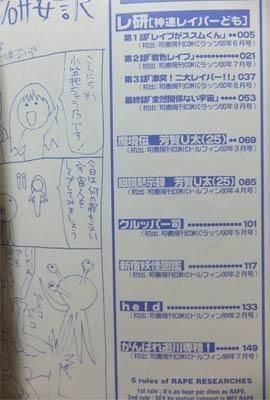 レ研[神速レイパーども]
第1話「レイプがススムくん」 005
(初出:司書房刊COMICラッツ00年6月号)
第2話「君色レイプ」 021
(初出:司書房刊COMICラッツ00年7月号)
第3話「激突!二大レイパー!!」 037
(初出:司書房刊COMICラッツ00年8月号)
最終話「全然関係ない宇宙」 053
(初出:司書房刊COMICラッツ00年9月号)
芳賀U太(25) 069
(初出:司書房刊COMICドルフィン00年3月号)
眼鏡黙示録 芳賀U太(25) 085
(初出:司書房刊COMICドルフィン00年4月号)
クルッパー司 101
(初出:司書房刊COMICラッツ00年5月号)
新宿妖怪図鑑 117
(初出:司書房刊COMICドルフィン00年2月号)
held 133
(初出:司書房刊COMICドルフィン99年2月号)
149
(初出:司書房刊COMICドルフィン99年7月号)
5 rules of RAPE RESEARCHES
1st rule : It's an hour per diem as RAPE.
2nd rule : SEX by mutual consent is NOT RAPE.
こんにちわ
です!
今日は何の罪もない
宇宙人を
みましょう